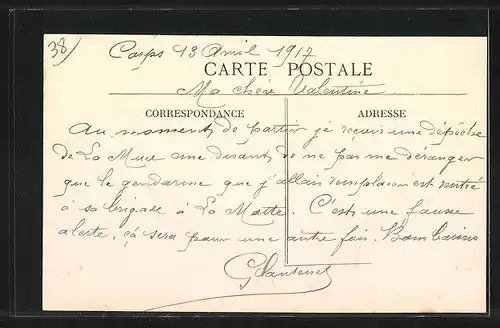 38)
Corps 13 Avril 1917
CARTE POSTALE
Ma chère Valentine
CORRESPONDANCE
ADRESSE
Au moment de partir je reçois une dépêche
de La Mure me disant de ne pas me déranger
que le gendarme que j'allais remplacer est rentré
à sa brigade à La Motte. C'est une fausse
alerte, ça sera pour une autre fois. Bons baisers